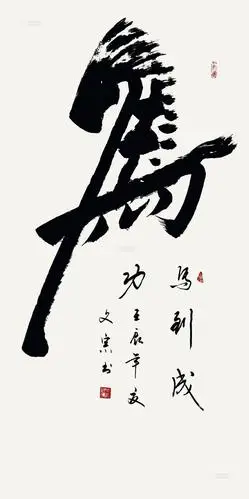 馬
马到成
功 壬辰年夏
文 书